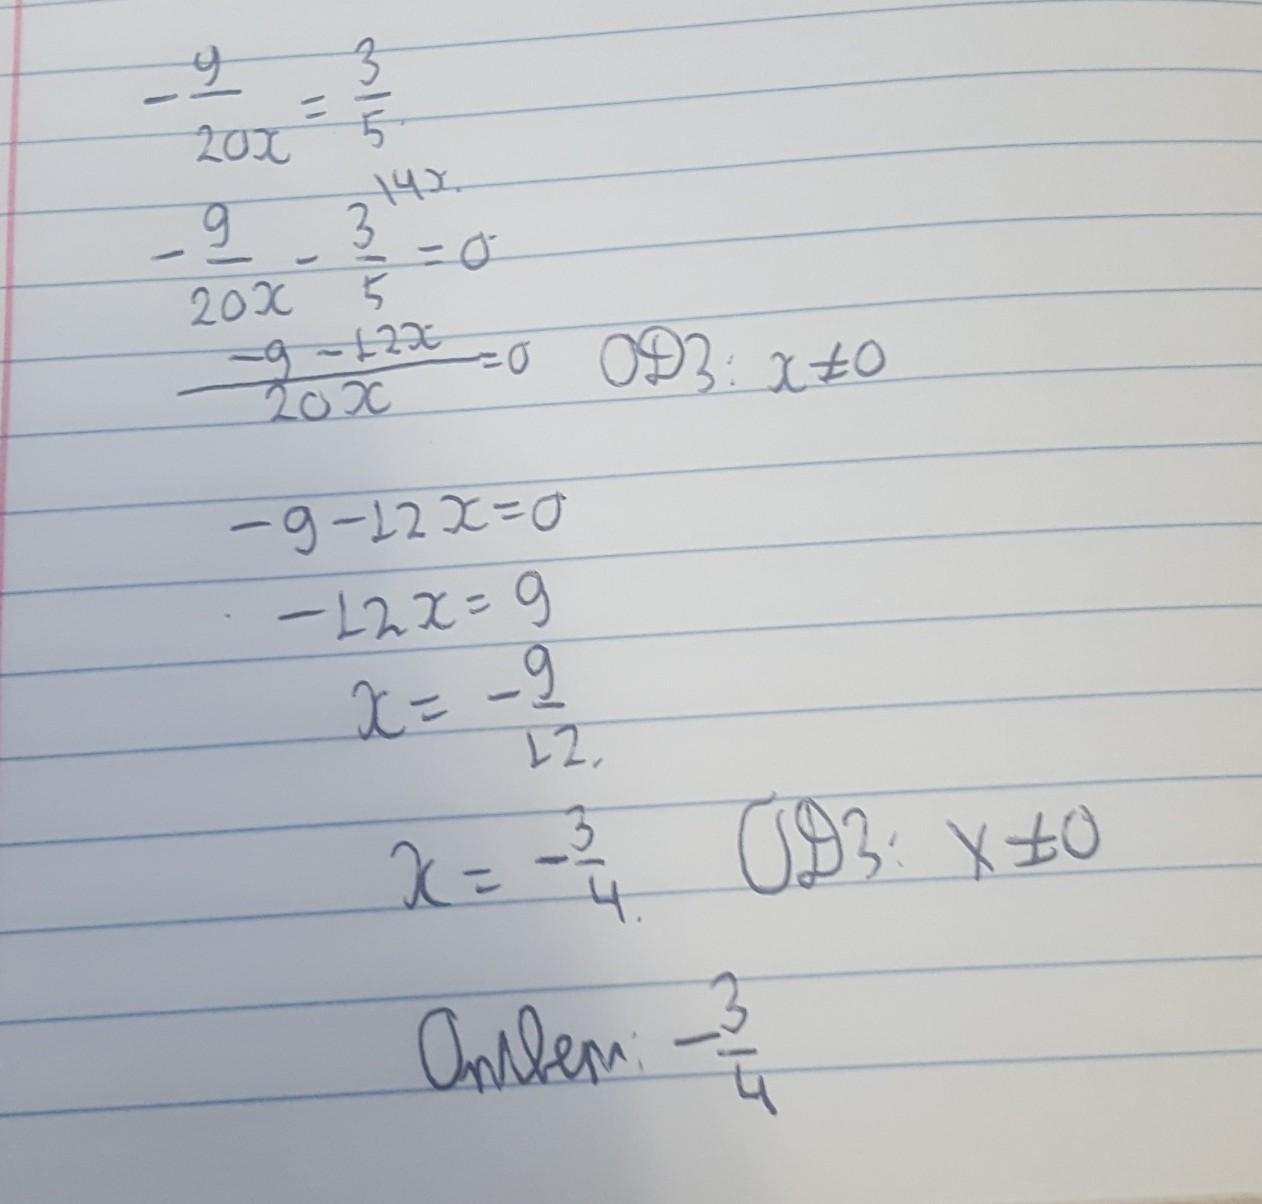 -9/20x = 3/5
-9/20x - 3\4x/5 = 0
(-9-12x)/20x = 0 ОДЗ: x≠0
-9-12x=0
-12x=9
x = -9/12.
x = -3/4. ОДЗ: x≠0
Ответ: -3/4